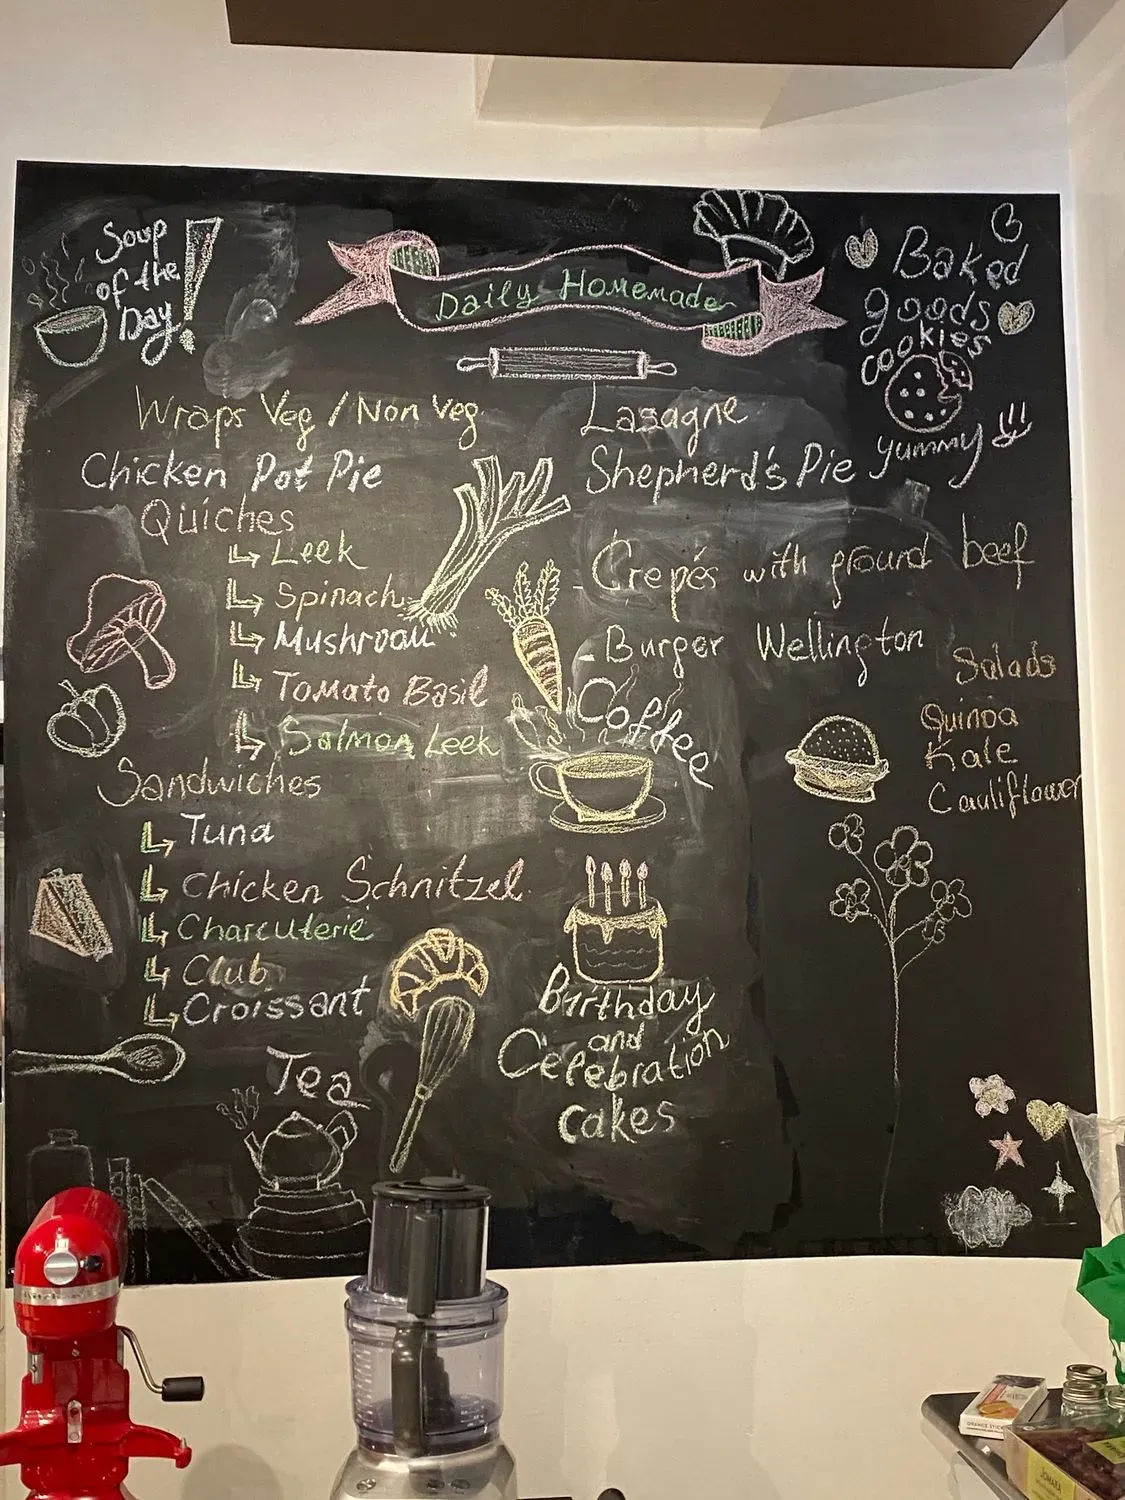 Soup
of the
Day!
Daily Homemade
Baked
goods
cookies
yummy
Wraps Veg / Non Veg
Chicken Pot Pie
Quiches
Leek
Spinach
Mushroom
Tomato Basil
Salmon Leek
Sandwiches
Tuna
Chicken Schnitzel
Charcuterie
Club
Croissant
Tea
Lasagne
Shepherd's Pie
Crepés with ground beef
- Burger Wellington
Coffee
Birthday
and
Celebration
cakes
Salads
Quinoa
Kale
Cauliflower